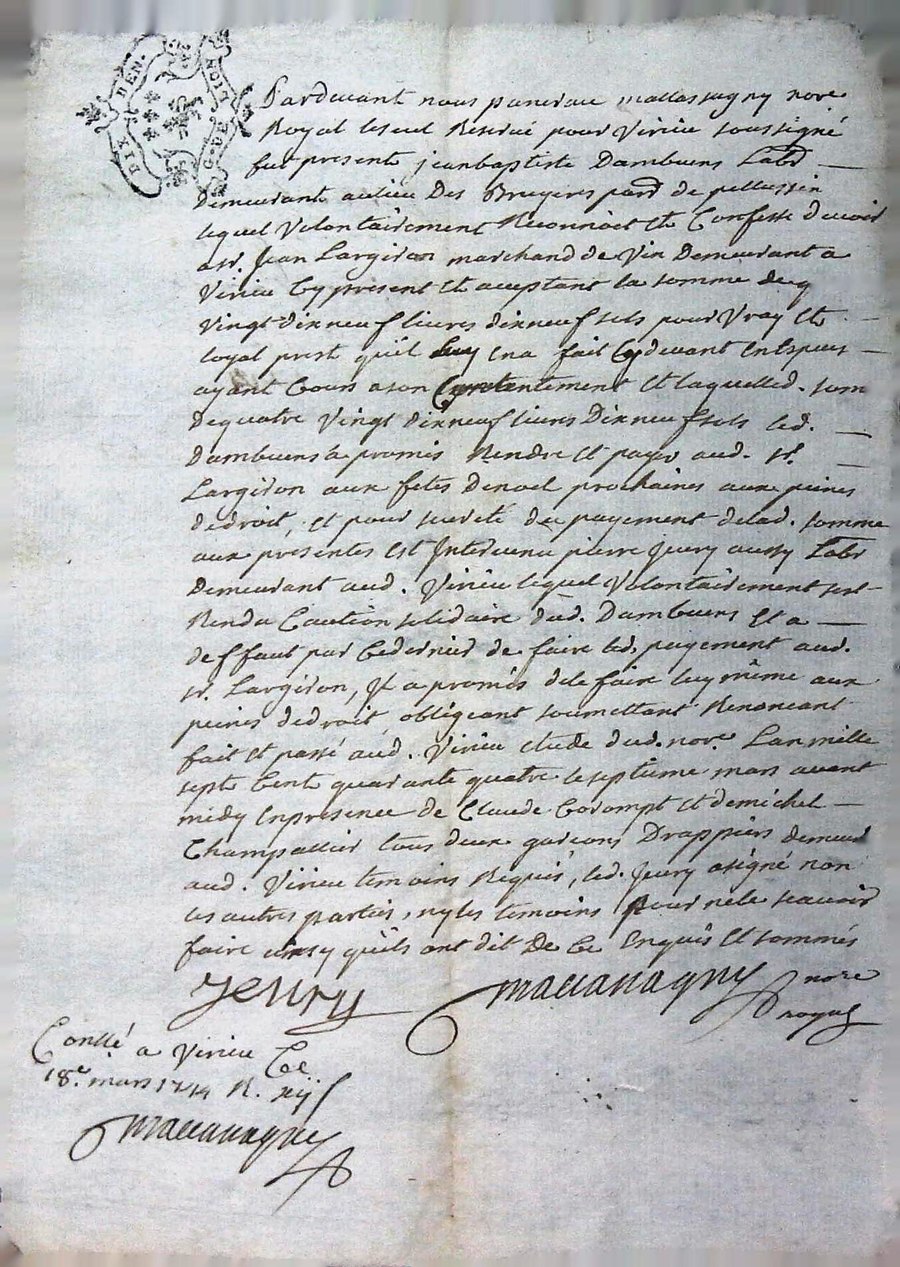 DIX DEN.
G. DE LION
Pardevant nous pancrace mattassagny nore
Royal le seul Reservé pour Virieu soussigné
fut present jean baptiste Dambuens Labr
Demeurant au lieu Des Bruyeres parr de pellussin
lequel Volontairement Reconnoit Et Confesse devoir
a sr. Jean Largiron marchand de Vin Demeurant a
Virieu Cy present Et aceptant la somme de q
Vingt dixneuf livres dixneuf sols pour Vray Et
loyal prest qu'il luy en a fait Cydevant En Espces
ayant Cours a son Contentement Et laquelle d. som
de quatre Vingt dixneuf livres Dixneuf sols led.
Dambuens a promis Rendre Et payer aud. sr.
Largiron aux fetes de noel prochaines aux peines
de droit, Et pour sureté du payement de lad. somme
aux présentes Est Intervenu pierre Jeury aussy Labr
Demeurant aud. Virieu lequel Volontairement sest
Rendu Caution solidaire dud. Dambuens Et a
deffaut par Ce dernier de faire led. payement aud.
sr. Largiron, Il a promis de le faire luy même aux
peines de droit obligeant soumettant Renoncant
fait Et passé aud. Virieu etude dud. nore. Lan mille
sept Cent quarante quatre le septieme mars avant
midy En presence de Claude Corompt Et de michel
Champallier tous deux garcons Drappiers demeur
aud. Virieu temoins Requis, led. Jeury a signé non
les autres parties, ny les temoins Pour ne le scavoir
faire ainsy qu'ils ont dit De Ce Enquis Et sommés
Jeury
nore
royal
Conllé a Virieu Ce
18e. mars 1744 R. xij s